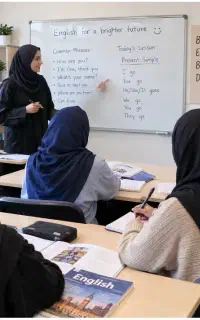 English for a brighter future
Common Phrases
• How are you?
• I'm fine, thank you
• What's your name?
• Nice to meet you
• Where are you from?
• Can I
Today's Lesson
Present Simple
I go
You go
He/She/It goes
We go
You go
They go
B
English